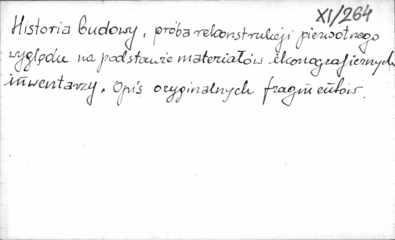 XI/264
Historia budowy, próba rekonstrukcji pierwotnego
wyglądu na podstawie materiałów ikonograficznych
inwentarzy. Opis oryginalnych fragmentów.